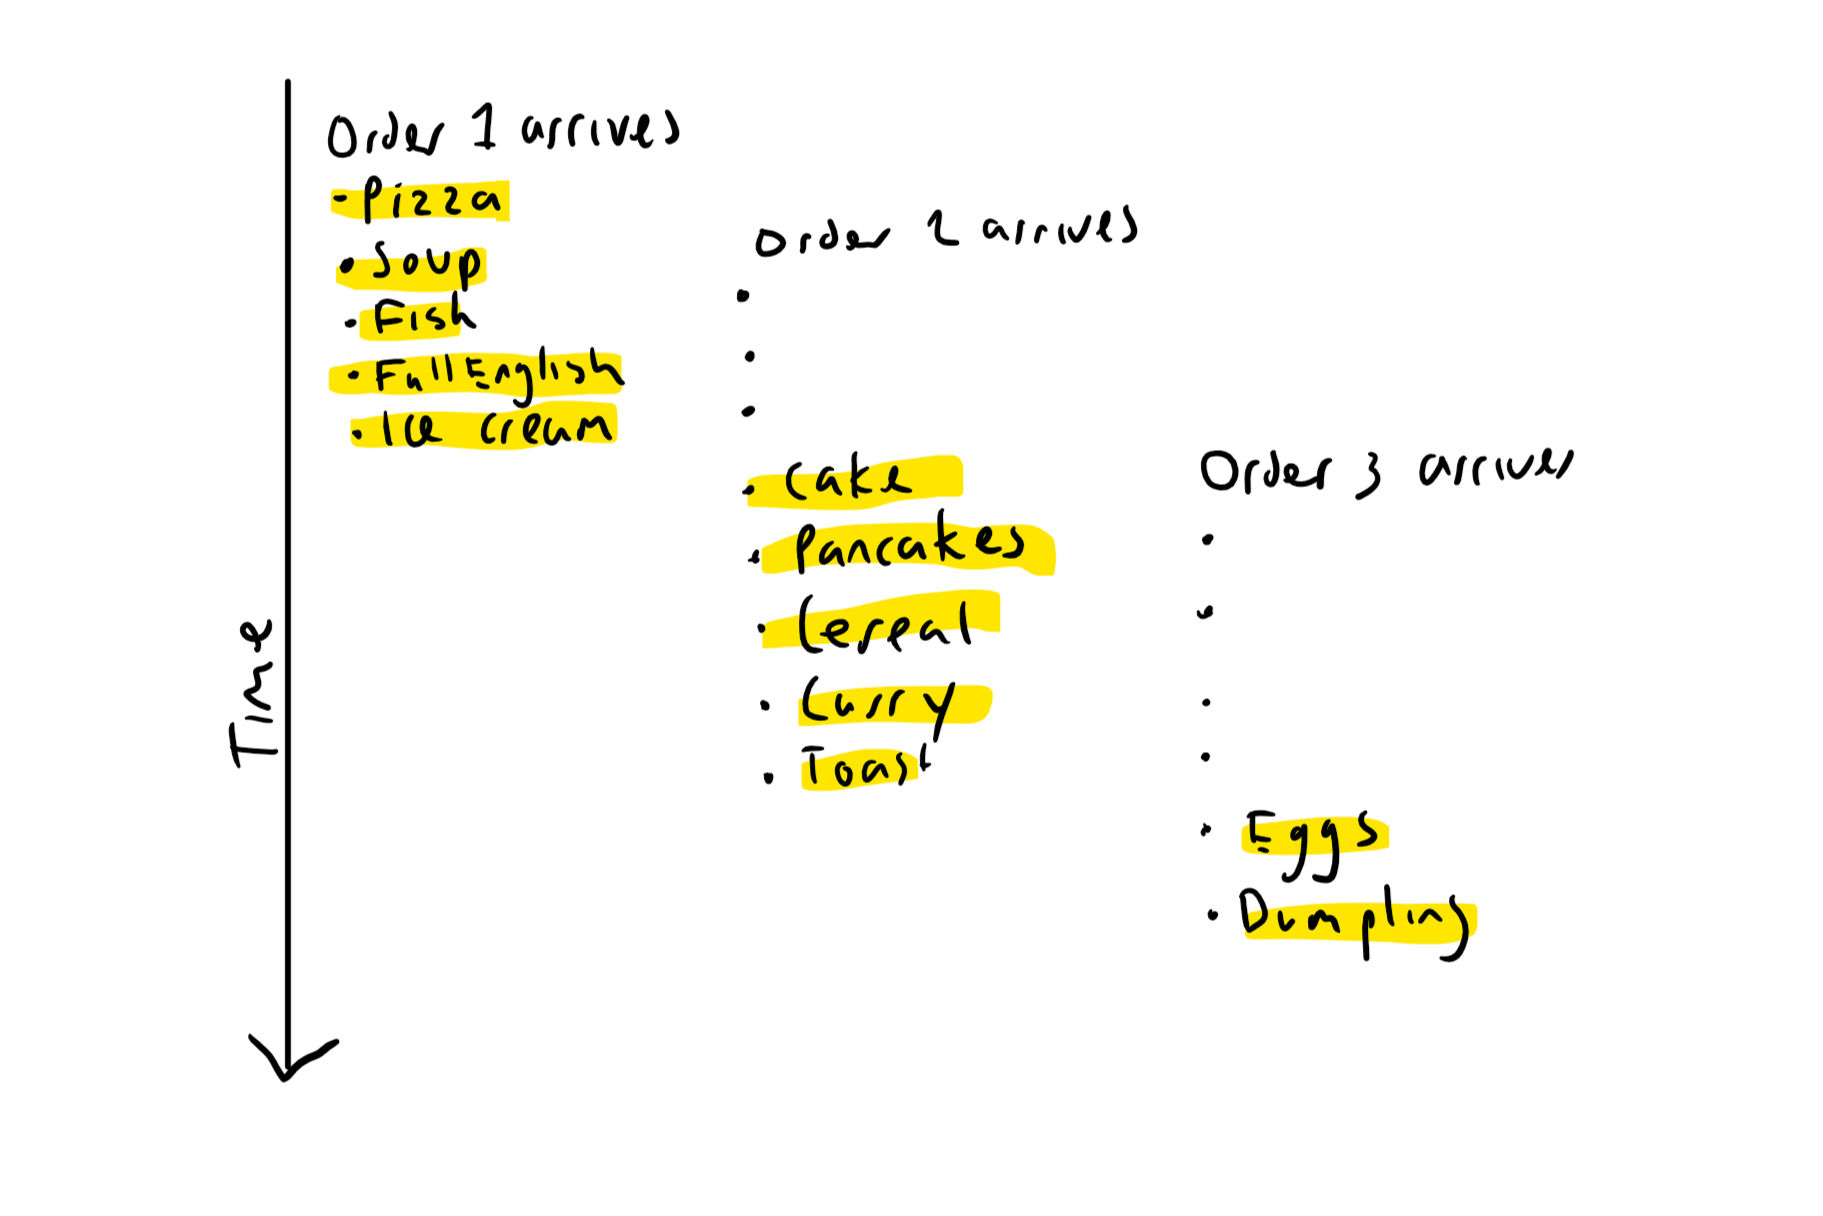 Order 1 arrives
- Pizza
• Soup
• Fish
• Full English
• Ice cream
Order 2 arrives
•
•
•
• Cake
• Pancakes
• Cereal
• Curry
• Toast
Order 3 arrives
•
•
•
•
• Eggs
• Dumpling
Time